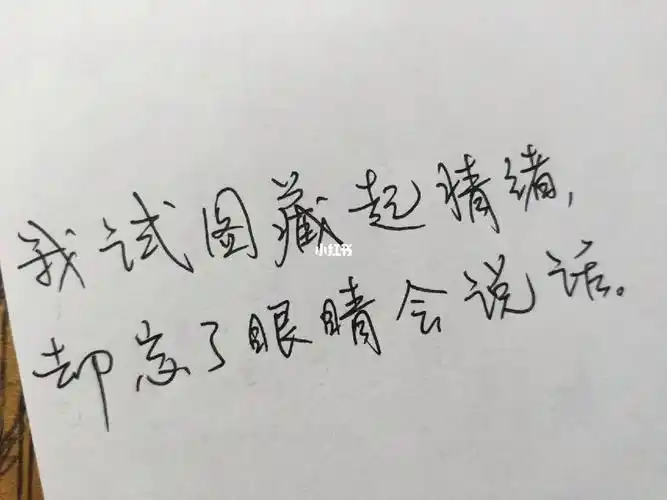 我试图藏起情绪,
小红书
却忘了眼睛会说话。